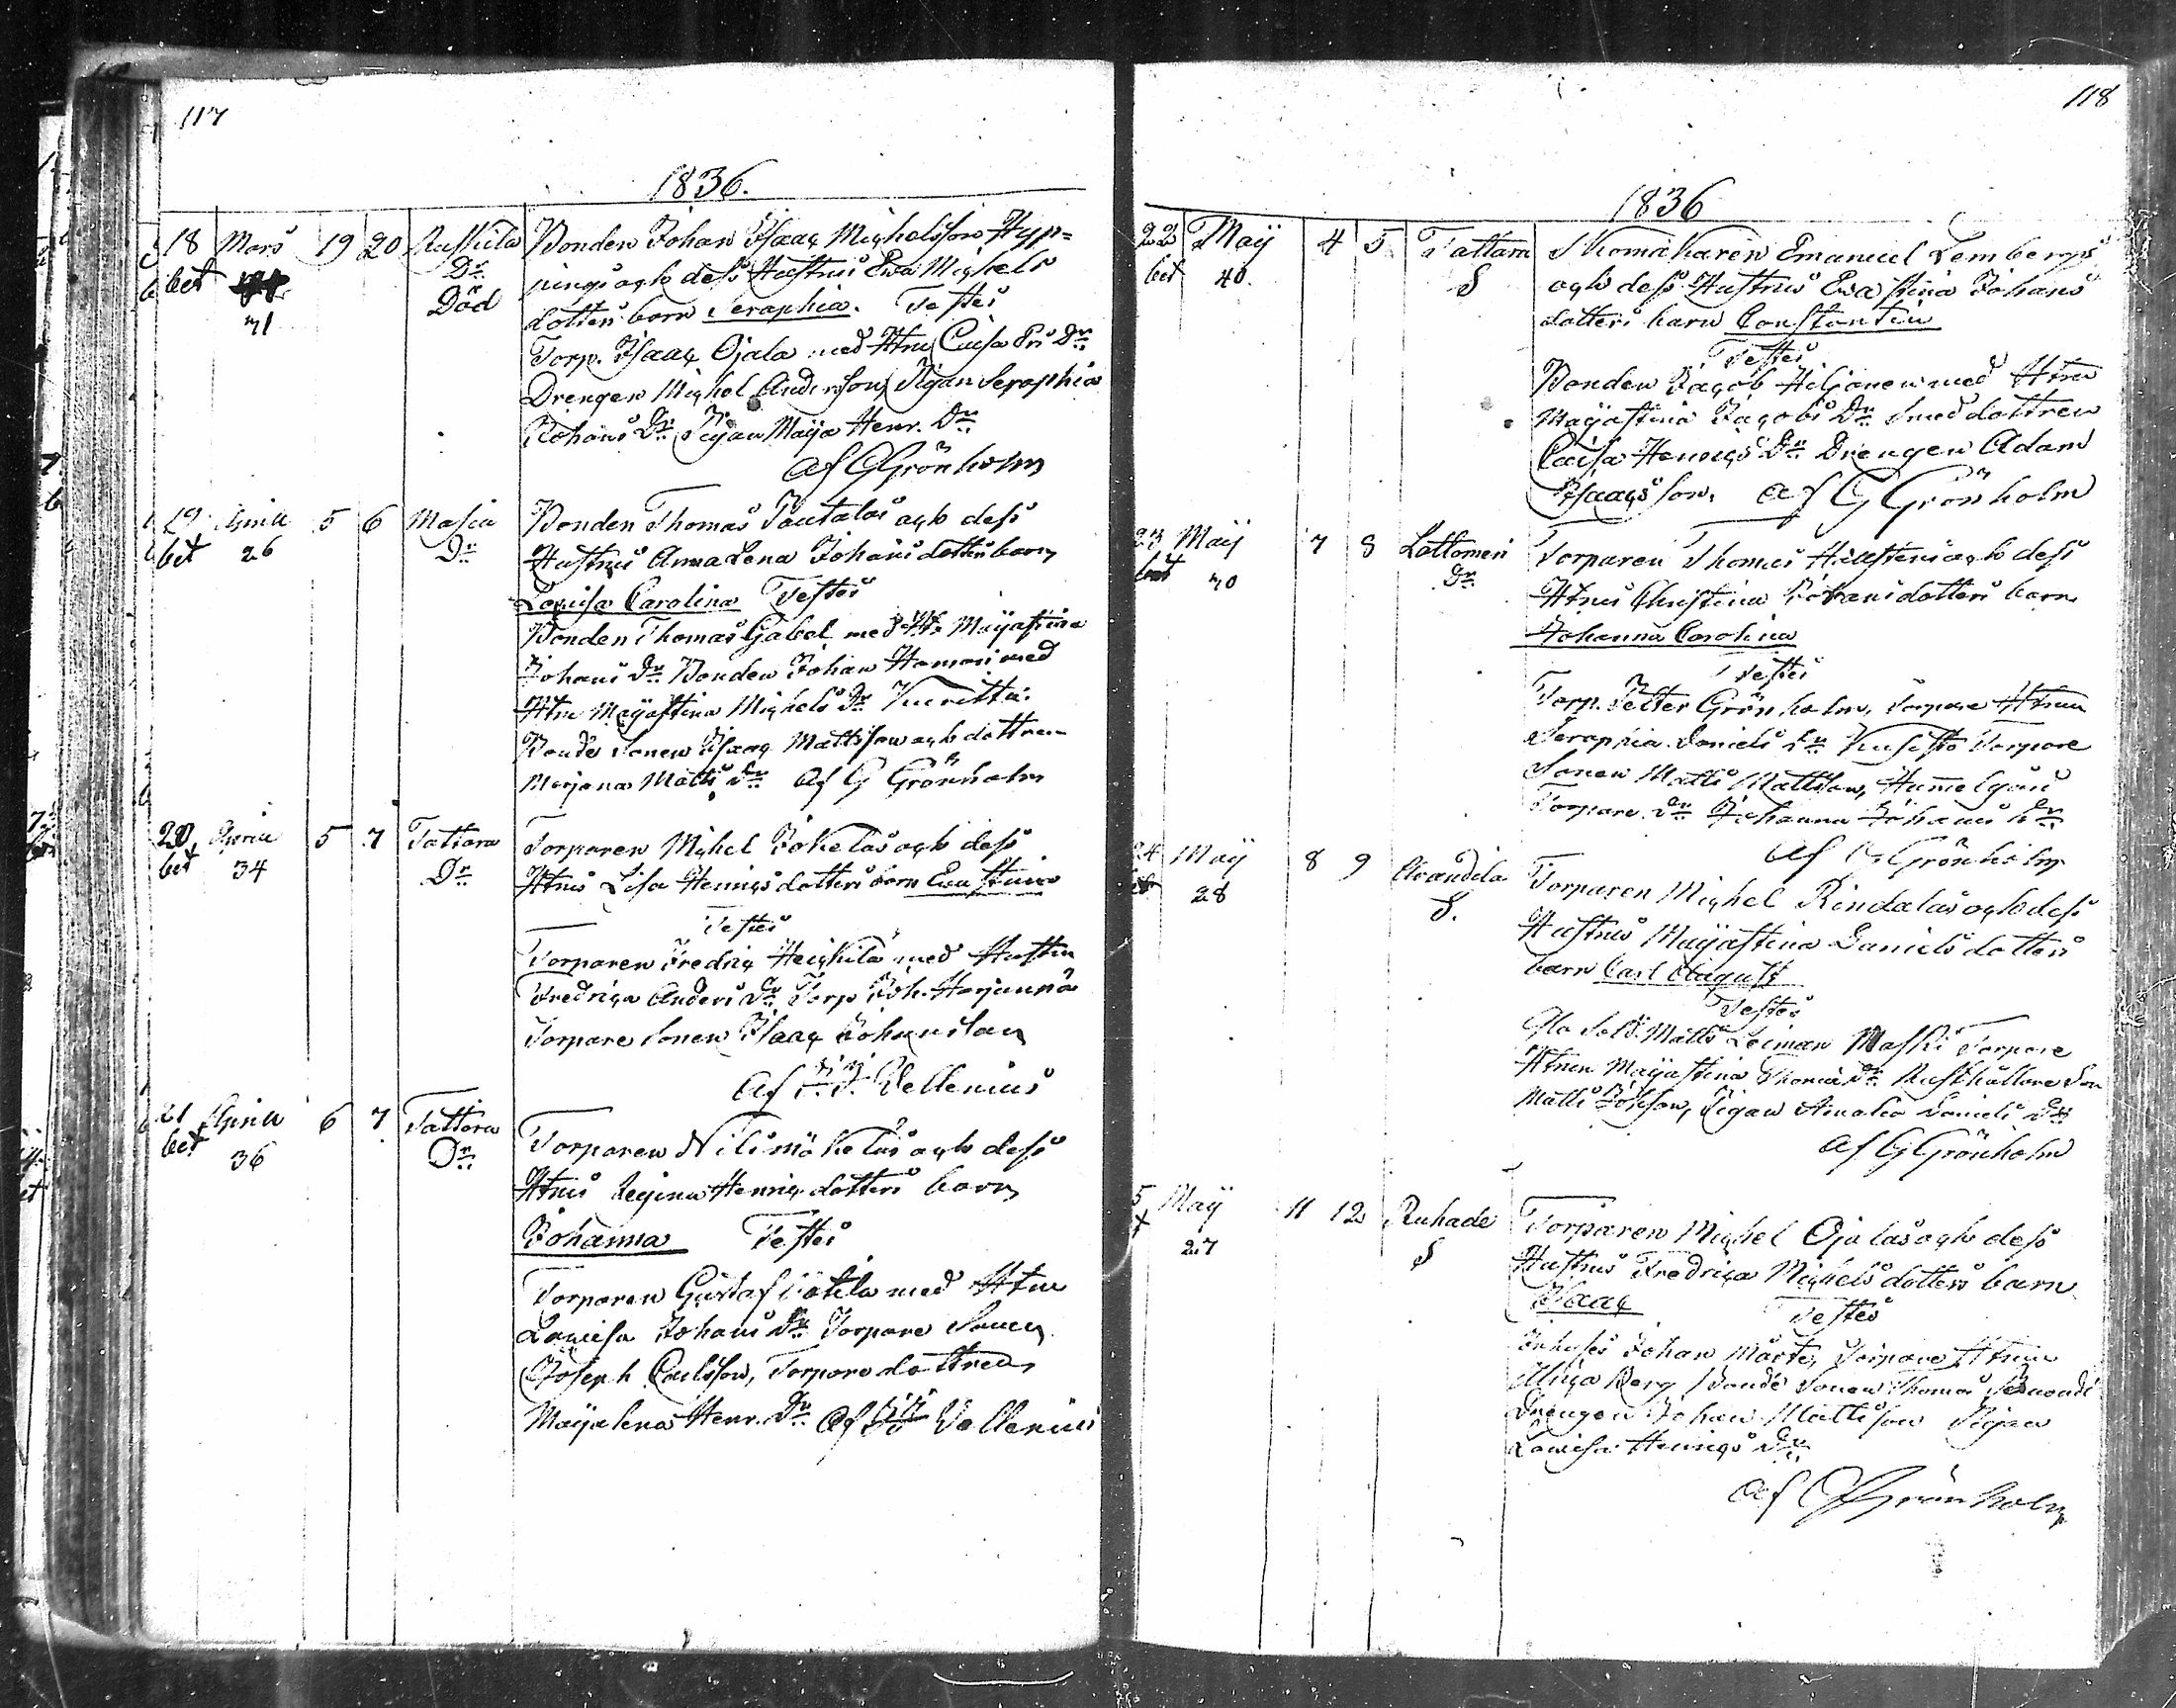 117
1836.
18 Mars 19 20 Bonden Johan Isaac Michelsson Hyp=
bet Dr pings och dess Hustrus Eva Michels
71 Död dotters barn Seraphia. Testes
Torp. Isaac Ojala med Htru Caisa Eri Dr
Drengen Michel Andersson, Pigan Seraphia
Johans Dr Pigan Maija Henr. Dr
af G Grönholm
19 Aprill 5 6 Masia Bonden Thomas Pantalas och dess
bet 26 Dr Hustrus Anna Lena Johans dotters barn
Lovisa Carolina Testes
Bonden Thomas Gabel med Maijastina
Johans Dr Bonden Johan Hemari med
Htru Maijastina Michels Dr
Bonde Sonen Isaac Mattsson och dottren
Marjana Matts Dr af G Grönholm
20 Aprill 5 7 Tattara Torparen Michel Jokelas och dess
bet 34 Dr Htrus Lisa Henrics dotters barn Eva Stina
Testes
Torparen Fredric Heickilä med Hustru
Fredrica Anders Dr Torp Joh. Harjunpä
Torpare Sonen Isaac Johansson
af Vellenius
21 Aprill 6 7 Tattara Torparen Nils mäkeläs och dess
bet 36 Dr Htrus Regina Henrics dotters barn
Johanna Testes
Torparen Gustaf med Htru
Lovisa Johans Dr Torpare Sonen
Joseph Carlsson, Torpare dottren
Maija lena Henr. Dr af Vellenius
118
1836
22 Maij 4 5 Tattara Skomakaren Emanuel Lembergs
bet 40. S och dess Hustrus Eva Stina Johans
dotters barn Constantin
Testes
Bonden Jacob Heljanen med Htru
Maijastina Jacobs Dr Smed dottren
Caisa Henrics Dr Drengen Adam
Isaacsson. af G Grönholm
23 Maij 7 8 Lattomeri Torparen Thomas och dess
bet 70 Dr Htrus Christina Johans dotters barn
Johanna Carolina
Testes
Torp. Petter Grönholm, Torpare Htrun
Seraphia Daniels Dr Torpare
Sonen Matts Mattsson, Humelgård
Torpare Dr Johanna Johans Dr
af G Grönholm
24 Maij 8 9 Torparen Michel Rindalas och dess
28 S. Hustrus Maijastina Daniels dotters
barn Carl August
Testes
Matts Leiman Maski Torpare
Htrun Maijastina Thomas Dr Rusthållare Son
Matts Johsson, Pigan Amalia Daniels Dr
af G Grönholm
5 Maij 11 12 Ruhade Torparen Michel Ojalas och dess
27 S Hustrus Fredrica Michels dotters barn
Isaac Testes
Inhyses Johan Torpare Htrun
Ulrica Berg Bonde Sonen Thomas
Drengen Johan Mattsson Pigan
Lovisa Henrics Dr
af G Grönholm